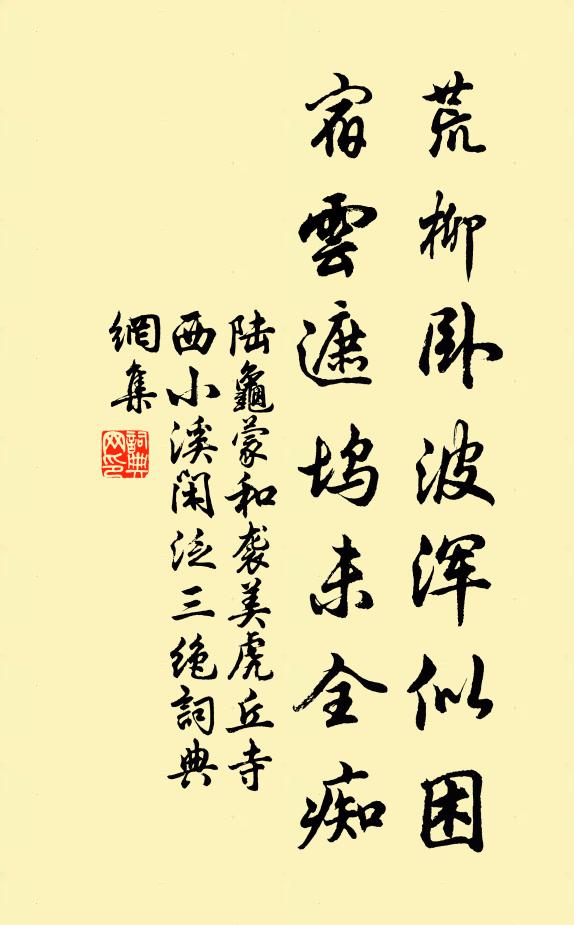 荒柳卧波浑似困
宿雲遮坞未全痴
陆龜蒙和袭美虎丘寺
西小溪闲泛三绝詞典
網集
詞典
网印